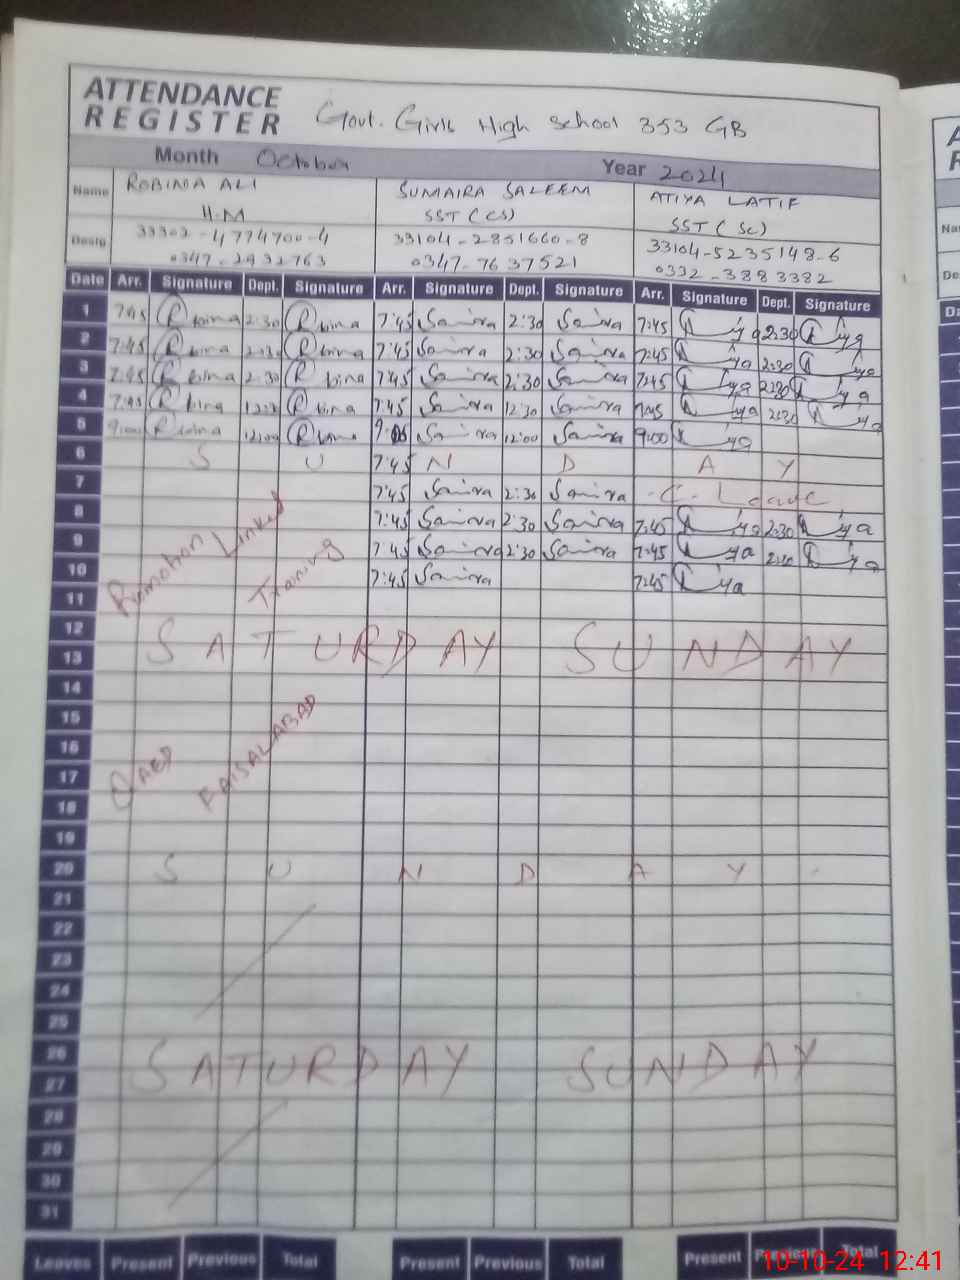 ATTENDANCE
REGISTER
Govt. Girls High School 353 GB
Month October Year 2024
Name ROBINA ALI SUMAIRA SALEEM ATIYA LATIF
H.M SST (CS) SST (SC)
Desig 33302-4774700-4 33104-2851660-8 33104-5235148-6
0347-2932763 0347-7637521 0332-3883382
Date Arr. Signature Dept. Signature Arr. Signature Dept. Signature Arr. Signature Dept. Signature
1 7:45 2:30 7:45 2:30 7:45 2:30
2 7:45 2:30 7:45 2:30 7:45 2:30
3 7:45 2:30 7:45 2:30 7:45 2:30
4 7:45 7:45 12:30 7:45 2:30
5 9:00 12:00 12:00 9:00
6 S U 7:45 N D A Y
7 7:45 2:30 C. Leave
8 7:45 2:30 7:45 2:30
9 7:45 2:30 7:45 2:30
10 7:45 7:45
Promotion Linked
Training
11
12
SATURDAY SUNDAY
13
14
15
16
QAED FAISALABAD
17
18
19
20 S U N D A Y
21
22
23
24
25
26
SATURDAY SUNDAY
27
28
29
30
31
Leaves Present Previous Total Present Previous Total Present Previous Total
10-10-24 12:41